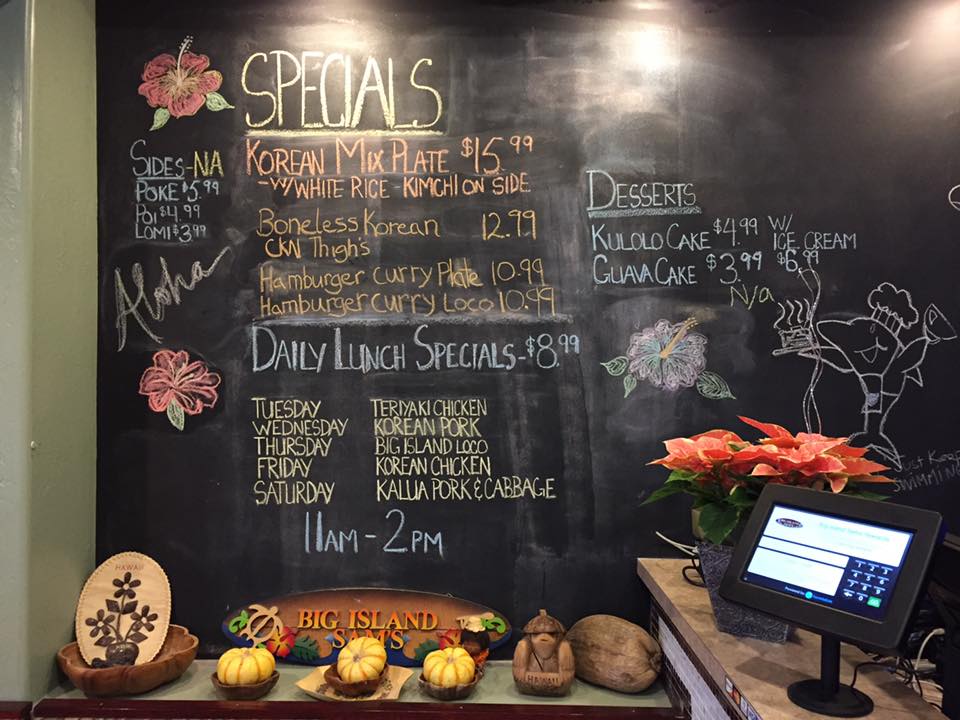 SPECIALS
KOREAN MIX PLATE $15.99
-W/WHITE RICE - KIMCHI ON SIDE
BONELESS KOREAN 12.99
CKN THIGH'S
HAMBURGER CURRY PLATE 10.99
HAMBURGER CURRY LOCO 10.99
SIDES-NA
POKE $5.99
POI $4.99
LOMI $3.99
Aloha
DESSERTS
KULOLO CAKE $4.99 W/ ICE CREAM
GUAVA CAKE $3.99 $6.99
N/a
DAILY LUNCH SPECIALS-$8.99
TUESDAY TERIYAKI CHICKEN
WEDNESDAY KOREAN PORK
THURSDAY BIG ISLAND LOCO
FRIDAY KOREAN CHICKEN
SATURDAY KALUA PORK & CABBAGE
11AM - 2PM
JUST KEEP
SWIMMING
HAWAII
BIG ISLAND
SAM'S
HAWAII